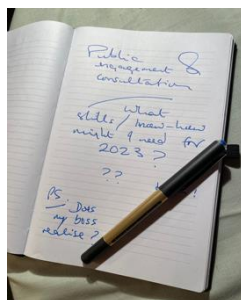 Public &
engagement
consultation
What
skills / know-how
might I need for
2023?
??
PS. Does
my boss
realise?